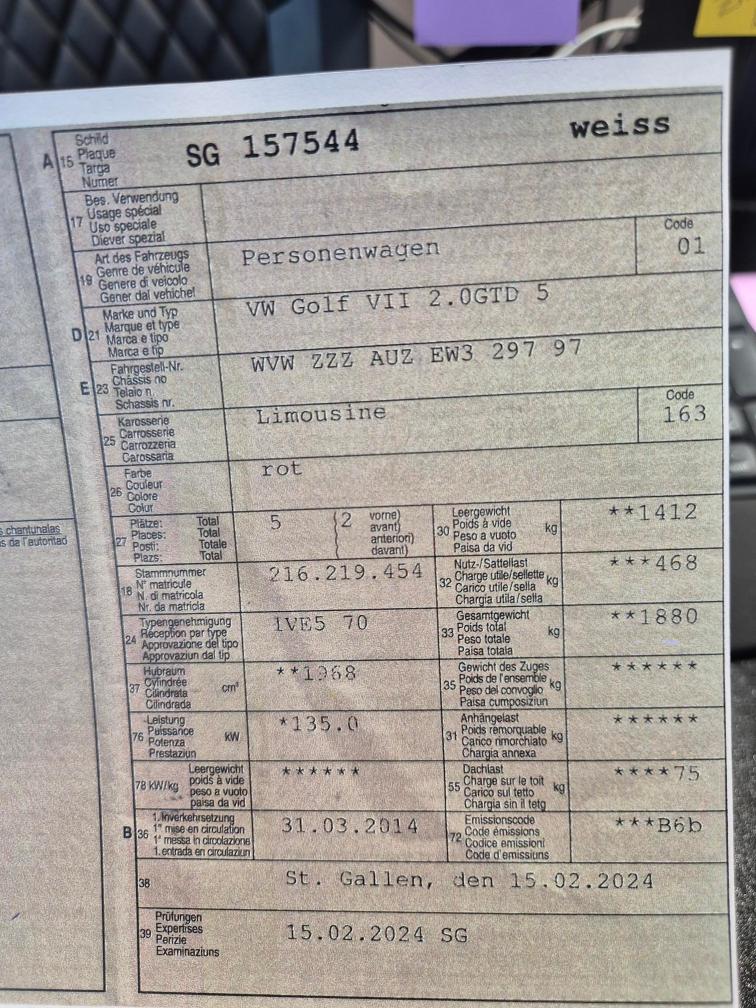 A 15 Schild
Plaque
Targa
Numer
SG 157544 weiss
17 Bes. Verwendung
Usage spécial
Uso speciale
Diever spezial
19 Art des Fahrzeugs
Genre de véhicule
Genere di veicolo
Gener dal vehichel
Personenwagen
Code
01
D 21 Marke und Typ
Marque et type
Marca e tipo
Marca e tip
VW Golf VII 2.0GTD 5
E 23 Fahrgestell-Nr.
Châssis no
Telaio n.
Schassis nr.
WVW ZZZ AUZ EW3 297 97
25 Karosserie
Carrosserie
Carrozzeria
Carossaria
Limousine
Code
163
26 Farbe
Couleur
Colore
Colur
rot
27 Plätze: Total
Places: Total
Posti: Totale
Plazs: Total
5 (2 vorne)
avant)
anteriori)
davant)
30 Leergewicht
Poids à vide
Peso a vuoto
Paisa da vid
kg
**1412
s chantunalas
18 Stammnummer
N° matricule
N. di matricola
Nr. da matricla
216.219.454
32 Nutz-/Sattellast
Charge utile/sellette
Carico utile/sella
Chargia utila/sella
kg
***468
24 Typengenehmigung
Réception par type
Approvazione del tipo
Approvaziun dal tip
1VE5 70
33 Gesamtgewicht
Poids total
Peso totale
Paisa totala
kg
**1880
37 Hubraum
Cylindrée
Cilindrata
Cilindrada
cm³
**1968
35 Gewicht des Zuges
Poids de l'ensemble
Peso del convoglio
Paisa cumposiziun
kg
******
76 Leistung
Puissance
Potenza
Prestaziun
kW
*135.0
31 Anhängelast
Poids remorquable
Carico rimorchiato
Chargia annexa
kg
******
78 kW/kg Leergewicht
poids à vide
peso a vuoto
paisa da vid
******
55 Dachlast
Charge sur le toit
Carico sul tetto
Chargia sin il tetg
kg
****75
B 36 1. Inverkehrsetzung
1re mise en circulation
1a messa in circolazione
1. entrada en circulaziun
31.03.2014
72 Emissionscode
Code émissions
Codice emissioni
Code d'emissiuns
***B6b
38
St. Gallen, den 15.02.2024
39 Prüfungen
Expertises
Perizie
Examinaziuns
15.02.2024 SG